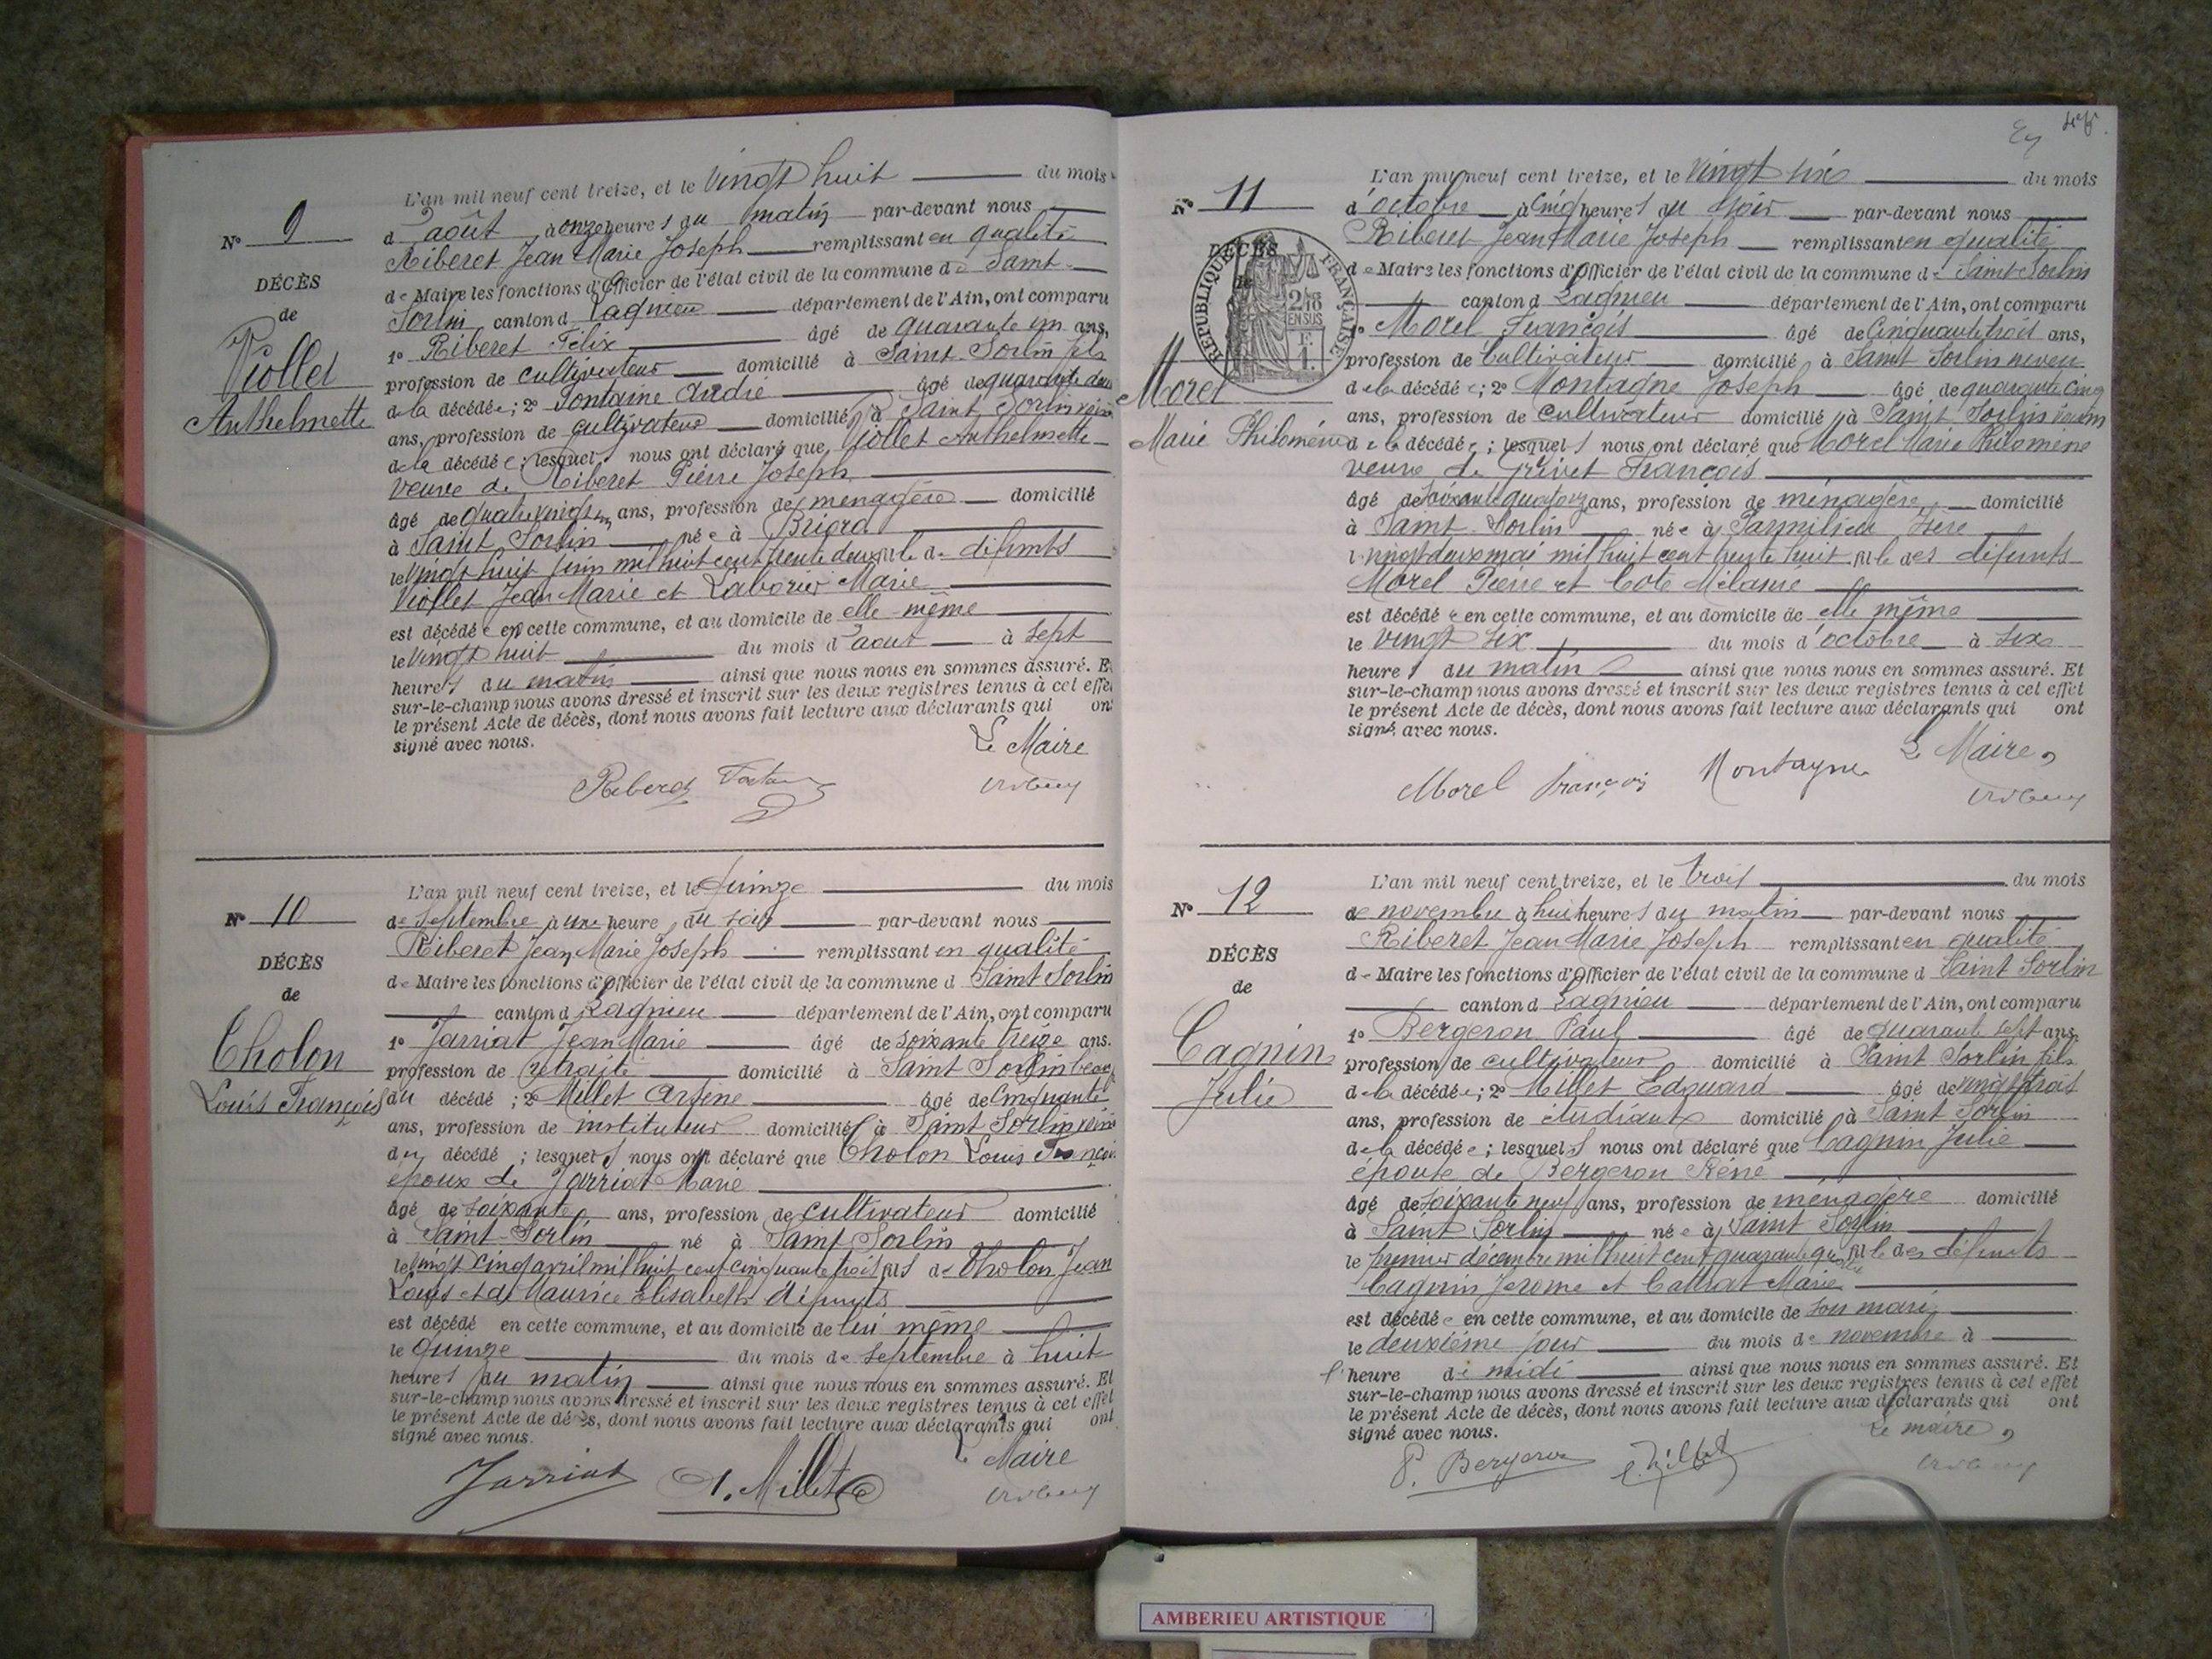 L'an mil neuf cent treize, et le vingt huit du mois
N° 9
d'août à onze heures du matin par-devant nous
Riberet Jean Marie Joseph remplissant en qualité
DÉCÈS
de Maire les fonctions d'Officier de l'état civil de la commune de Saint-
de
Sorlin canton d Lagnieu département de l'Ain, ont comparu
Viollet
1° Riberet Félix âgé de quarante un ans,
profession de cultivateur domicilié à Saint Sorlin fils
Anthelmette
de la décédée; 2° Fontaine André âgé de quarante deux
ans, profession de cultivateur domicilié à Saint Sorlin voisin
de la décédée; lesquels nous ont déclaré que Viollet Anthelmette
veuve de Riberet Pierre Joseph
âgé de quatre vingt un ans, profession de ménagère domicilié
à Saint Sorlin née à Briord
le vingt huit juin mil huit cent trente deux fille de défunts
Viollet Jean Marie et Laborier Marie
est décédée en cette commune, et au domicile de elle même
le vingt huit du mois d'aout à sept
heures du matin ainsi que nous nous en sommes assuré. Et
sur-le-champ nous avons dressé et inscrit sur les deux registres tenus à cet effet
le présent Acte de décès, dont nous avons fait lecture aux déclarants qui ont
signé avec nous.
Le Maire
Riberet
L'an mil neuf cent treize, et le quinze du mois
N° 10
de septembre à une heure du soir par-devant nous
Riberet Jean Marie Joseph remplissant en qualité
DÉCÈS
de Maire les fonctions d'Officier de l'état civil de la commune d Saint Sorlin
de
canton d Lagnieu département de l'Ain, ont comparu
Cholon
1° Jarriat Jean Marie âgé de soixante treize ans.
profession de retraité domicilié à Saint Sorlin beau
Louis François
du décédé; 2° Millet Arsène âgé de cinquante
ans, profession de instituteur domicilié à Saint Sorlin voisin
du décédé; lesquels nous ont déclaré que Cholon Louis François
époux de Jarriat Marie
âgé de soixante ans, profession de cultivateur domicilié
à Saint-Sorlin né à Saint Sorlin
le vingt cinq avril mil huit cent cinquante trois fils de Cholon Jean
Louis et de Maurice Elisabeth défunts
est décédé en cette commune, et au domicile de lui même
le quinze du mois de septembre à huit
heures du matin ainsi que nous nous en sommes assuré. Et
sur-le-champ nous avons dressé et inscrit sur les deux registres tenus à cet effet
le présent Acte de décès, dont nous avons fait lecture aux déclarants qui ont
signé avec nous.
Le Maire
Jarriat A. Millet
L'an mil neuf cent treize, et le vingt six du mois
N° 11
d'octobre à cinq heures du soir par-devant nous
Riberet Jean Marie Joseph remplissant en qualité
DÉCÈS
de Maire les fonctions d'Officier de l'état civil de la commune de Saint Sorlin
de
RÉPUBLIQUE FRANÇAISE
EN SUS
canton d Lagnieu département de l'Ain, ont comparu
1° Morel François âgé de cinquante trois ans,
profession de cultivateur domicilié à Saint Sorlin neveu
Morel
de la décédée; 2° Montagne Joseph âgé de quarante cinq
ans, profession de cultivateur domicilié à Saint Sorlin voisin
Marie Philomène
de la décédée; lesquels nous ont déclaré que Morel Marie Philomène
veuve de Grivet François
âgé de soixante quatorze ans, profession de ménagère domicilié
à Saint-Sorlin née à Parmilieu Isère
le vingt deux mai mil huit cent trente huit fille des défunts
Morel Pierre et Cote Mélanie
est décédée en cette commune, et au domicile de elle même
le vingt six du mois d'octobre à six
heures du matin ainsi que nous nous en sommes assuré. Et
sur-le-champ nous avons dressé et inscrit sur les deux registres tenus à cet effet
le présent Acte de décès, dont nous avons fait lecture aux déclarants qui ont
signé avec nous.
Le Maire,
Morel françois Montagne
L'an mil neuf cent treize, et le trois du mois
N° 12
de novembre à huit heures du matin par-devant nous
Riberet Jean Marie Joseph remplissant en qualité
DÉCÈS
de Maire les fonctions d'Officier de l'état civil de la commune d Saint Sorlin
de
canton d Lagnieu département de l'Ain, ont comparu
Cagnin
1° Bergeron Paul âgé de quarante sept ans,
profession de cultivateur domicilié à Saint Sorlin fils
Julie
de la décédée; 2° Millet Edouard âgé de vingt trois
ans, profession de étudiant domicilié à Saint Sorlin
de la décédée; lesquels nous ont déclaré que Cagnin Julie
épouse de Bergeron Réné
âgé de soixante neuf ans, profession de ménagère domicilié
à Saint Sorlin née à Saint Sorlin
le premier décembre mil huit cent quarante fille des défunts
Cagnin Jerome et Marie
est décédée en cette commune, et au domicile de son mari
le deuxième jour du mois de novembre à
l'heure de midi ainsi que nous nous en sommes assuré. Et
sur-le-champ nous avons dressé et inscrit sur les deux registres tenus à cet effet
le présent Acte de décès, dont nous avons fait lecture aux déclarants qui ont
signé avec nous.
Le maire,
P. Bergeron E. Millet
AMBERIEU ARTISTIQUE